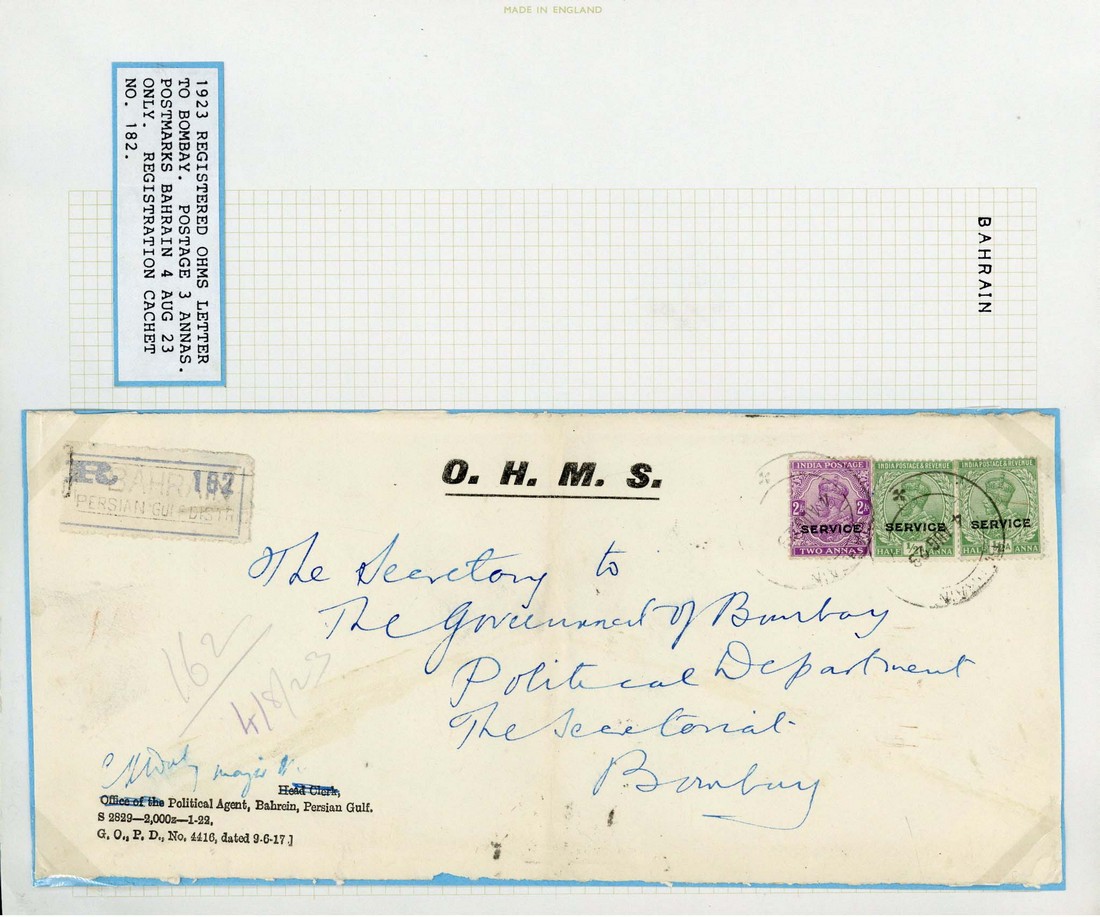 MADE IN ENGLAND
1923 REGISTERED OHMS LETTER
TO BOMBAY. POSTAGE 3 ANNAS.
POSTMARKS BAHRAIN 4 AUG 23
ONLY. REGISTRATION CACHET
NO. 182.
BAHRAIN
R 182
BAHRAIN
PERSIAN GULF
O. H. M. S.
INDIA POSTAGE
2As
SERVICE
TWO ANNAS
INDIA POSTAGE & REVENUE
SERVICE
1/2
HALF ANNA
INDIA POSTAGE & REVENUE
SERVICE
1/2
HALF ANNA
4 AUG 23
The Secretary to
The Government of Bombay
Political Department
The Secretariat
Bombay
162
4/8/23
Major
Head Clerk,
Office of the Political Agent, Bahrein, Persian Gulf.
S 2829—2,000z—1-22.
G. O., P. D., No. 4416, dated 9-6-17.]